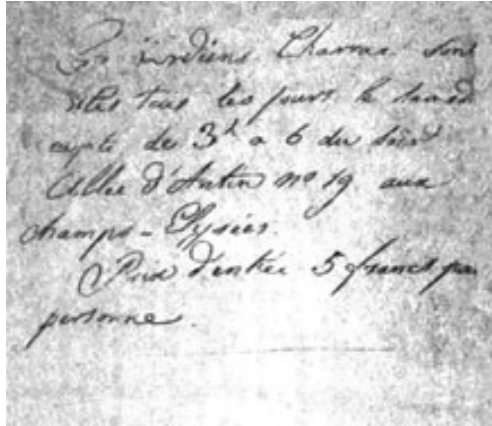 Les indiens Charrua sont
tous les jours le samedi
cepté de 3h a 6 du soir
Allée d'Antin no 19 aux
champs-Elysées.
Prix d'entrée 5 francs par
personne